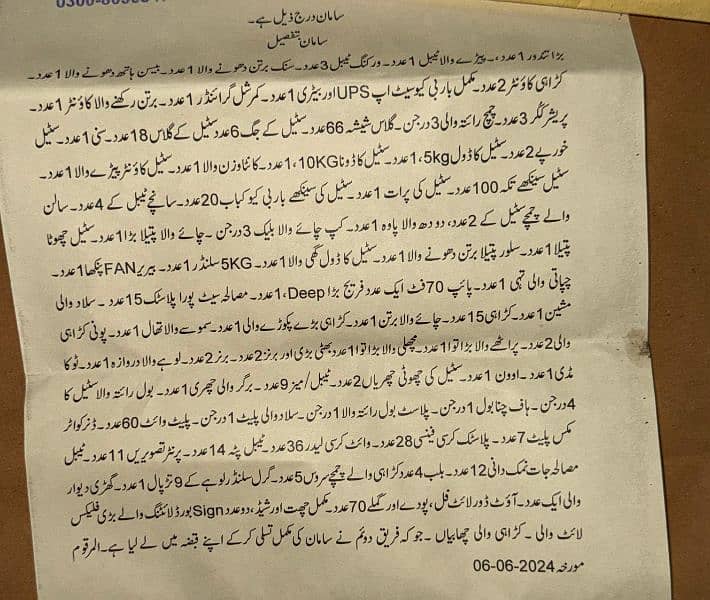 سامان درج ذیل ہے۔
سامان تفصیل
بڑا تندور 1عدد،۔ پیڑے والا ٹیبل 1عدد۔ ورکنگ ٹیبل 3عدد۔ سنک برتن دھونے والا 1عدد۔ بیسن ہاتھ دھونے والا 1عدد۔
کڑاہی کاؤنٹر 2عدد۔ مکمل باربی کیو سیٹ اپ UPS اور بیٹری 1عدد۔ کمرشل گرائنڈر 1عدد۔ برتن رکھنے والا کاؤنٹر 1عدد۔
پریشر ککر 3عدد۔ چمچ رائتہ والی 3درجن۔ گلاس شیشہ 66عدد۔ سٹیل کے جگ 6عدد سٹیل کے گلاس 18عدد۔ سنی 1عدد۔ سٹیل
خورپے 2عدد۔ سٹیل کا ڈول 5kg،1عدد۔ سٹیل کا ڈونا 10KG،1عدد۔ کانٹا وزن والا 1عدد۔ سٹیل کاؤنٹر پیڑے والا 1عدد۔
سٹیل سینکھے تکہ 100عدد۔ سٹیل کی پرات 1عدد۔ سٹیل کی سینکھے باربی کیو کباب 20عدد۔ سانچے ٹیبل کے 4عدد۔ سالن
والے چمچے سٹیل کے 2عدد، دودھ والا پاوہ 1عدد۔ کپ چائے والا بلیک 3درجن۔ چائے والا پتیلا بڑا 1عدد۔ سٹیل چھوٹا
پتیلا 1عدد۔ سلور پتیلا برتن دھونے والا 1عدد۔ سٹیل کا ڈول گھی والا 1عدد۔ 5KG سلنڈر 1عدد۔ بیریر FAN پنکھا 1عدد۔
چپاتی والی تہی 1عدد۔ پائپ 70فٹ ایک عدد فریج بڑا Deep،1عدد۔ مصالحہ سیٹ پورا پلاسٹک 15عدد۔ سلاد والی
مشین 1عدد۔ کڑاہی 15عدد۔ چائے والا برتن 1عدد۔ کڑاہی بڑے پکوڑے والی 1عدد۔ سموسے والا تھال 1عدد۔ پونی کڑاہی
والی 2عدد۔ پراٹھے والا بڑا توا 1عدد۔ مچھلی والا بڑا توا 1عدد بھٹی بڑی اور برنر 2عدد۔ برنر 2عدد۔ لوہے والا دروازہ 1عدد۔ ٹوکا
مڈی 1عدد۔ اوون 1عدد۔ سٹیل کی چھوٹی چھریاں 2عدد۔ ٹیبل/میز 9عدد۔ برگر والی چھری 1عدد۔ بول رائتہ والا سٹیل کا
4درجن۔ ہاف چنا بول 1درجن۔ پلاسٹ بول رائتہ والا 1درجن۔ سلاد والی پلیٹ 1درجن۔ پلیٹ وائٹ 60عدد۔ ڈنر کواٹر
مکس پلیٹ 7عدد۔ پلاسٹک کرسی فینسی 28عدد۔ وائٹ کرسی لیدر 36عدد۔ ٹیبل پٹہ 14عدد۔ پرنٹر تصویریں 11عدد۔ ٹیبل
مصالحہ جات نمک دانی 12عدد۔ بلب 4عدد کڑاہی والے چمچے سروس 5عدد۔ گرل سلنڈر لوہے کے 9 ترپال 1عدد۔ گھڑی دیوار
والی ایک عدد۔ آؤٹ ڈور لائٹ فل، پودے اور گملے 70عدد۔ مکمل چھت اور شیڈ، دو عدد Sign بورڈ لائٹنگ والے بڑی فلیکس
لائٹ والی۔ کڑاہی والی چھابیاں۔ جو کہ فریق دوئم نے سامان کی مکمل تسلی کر کے اپنے قبضہ میں لے لیا ہے۔ المرقوم
مورخہ 06-06-2024